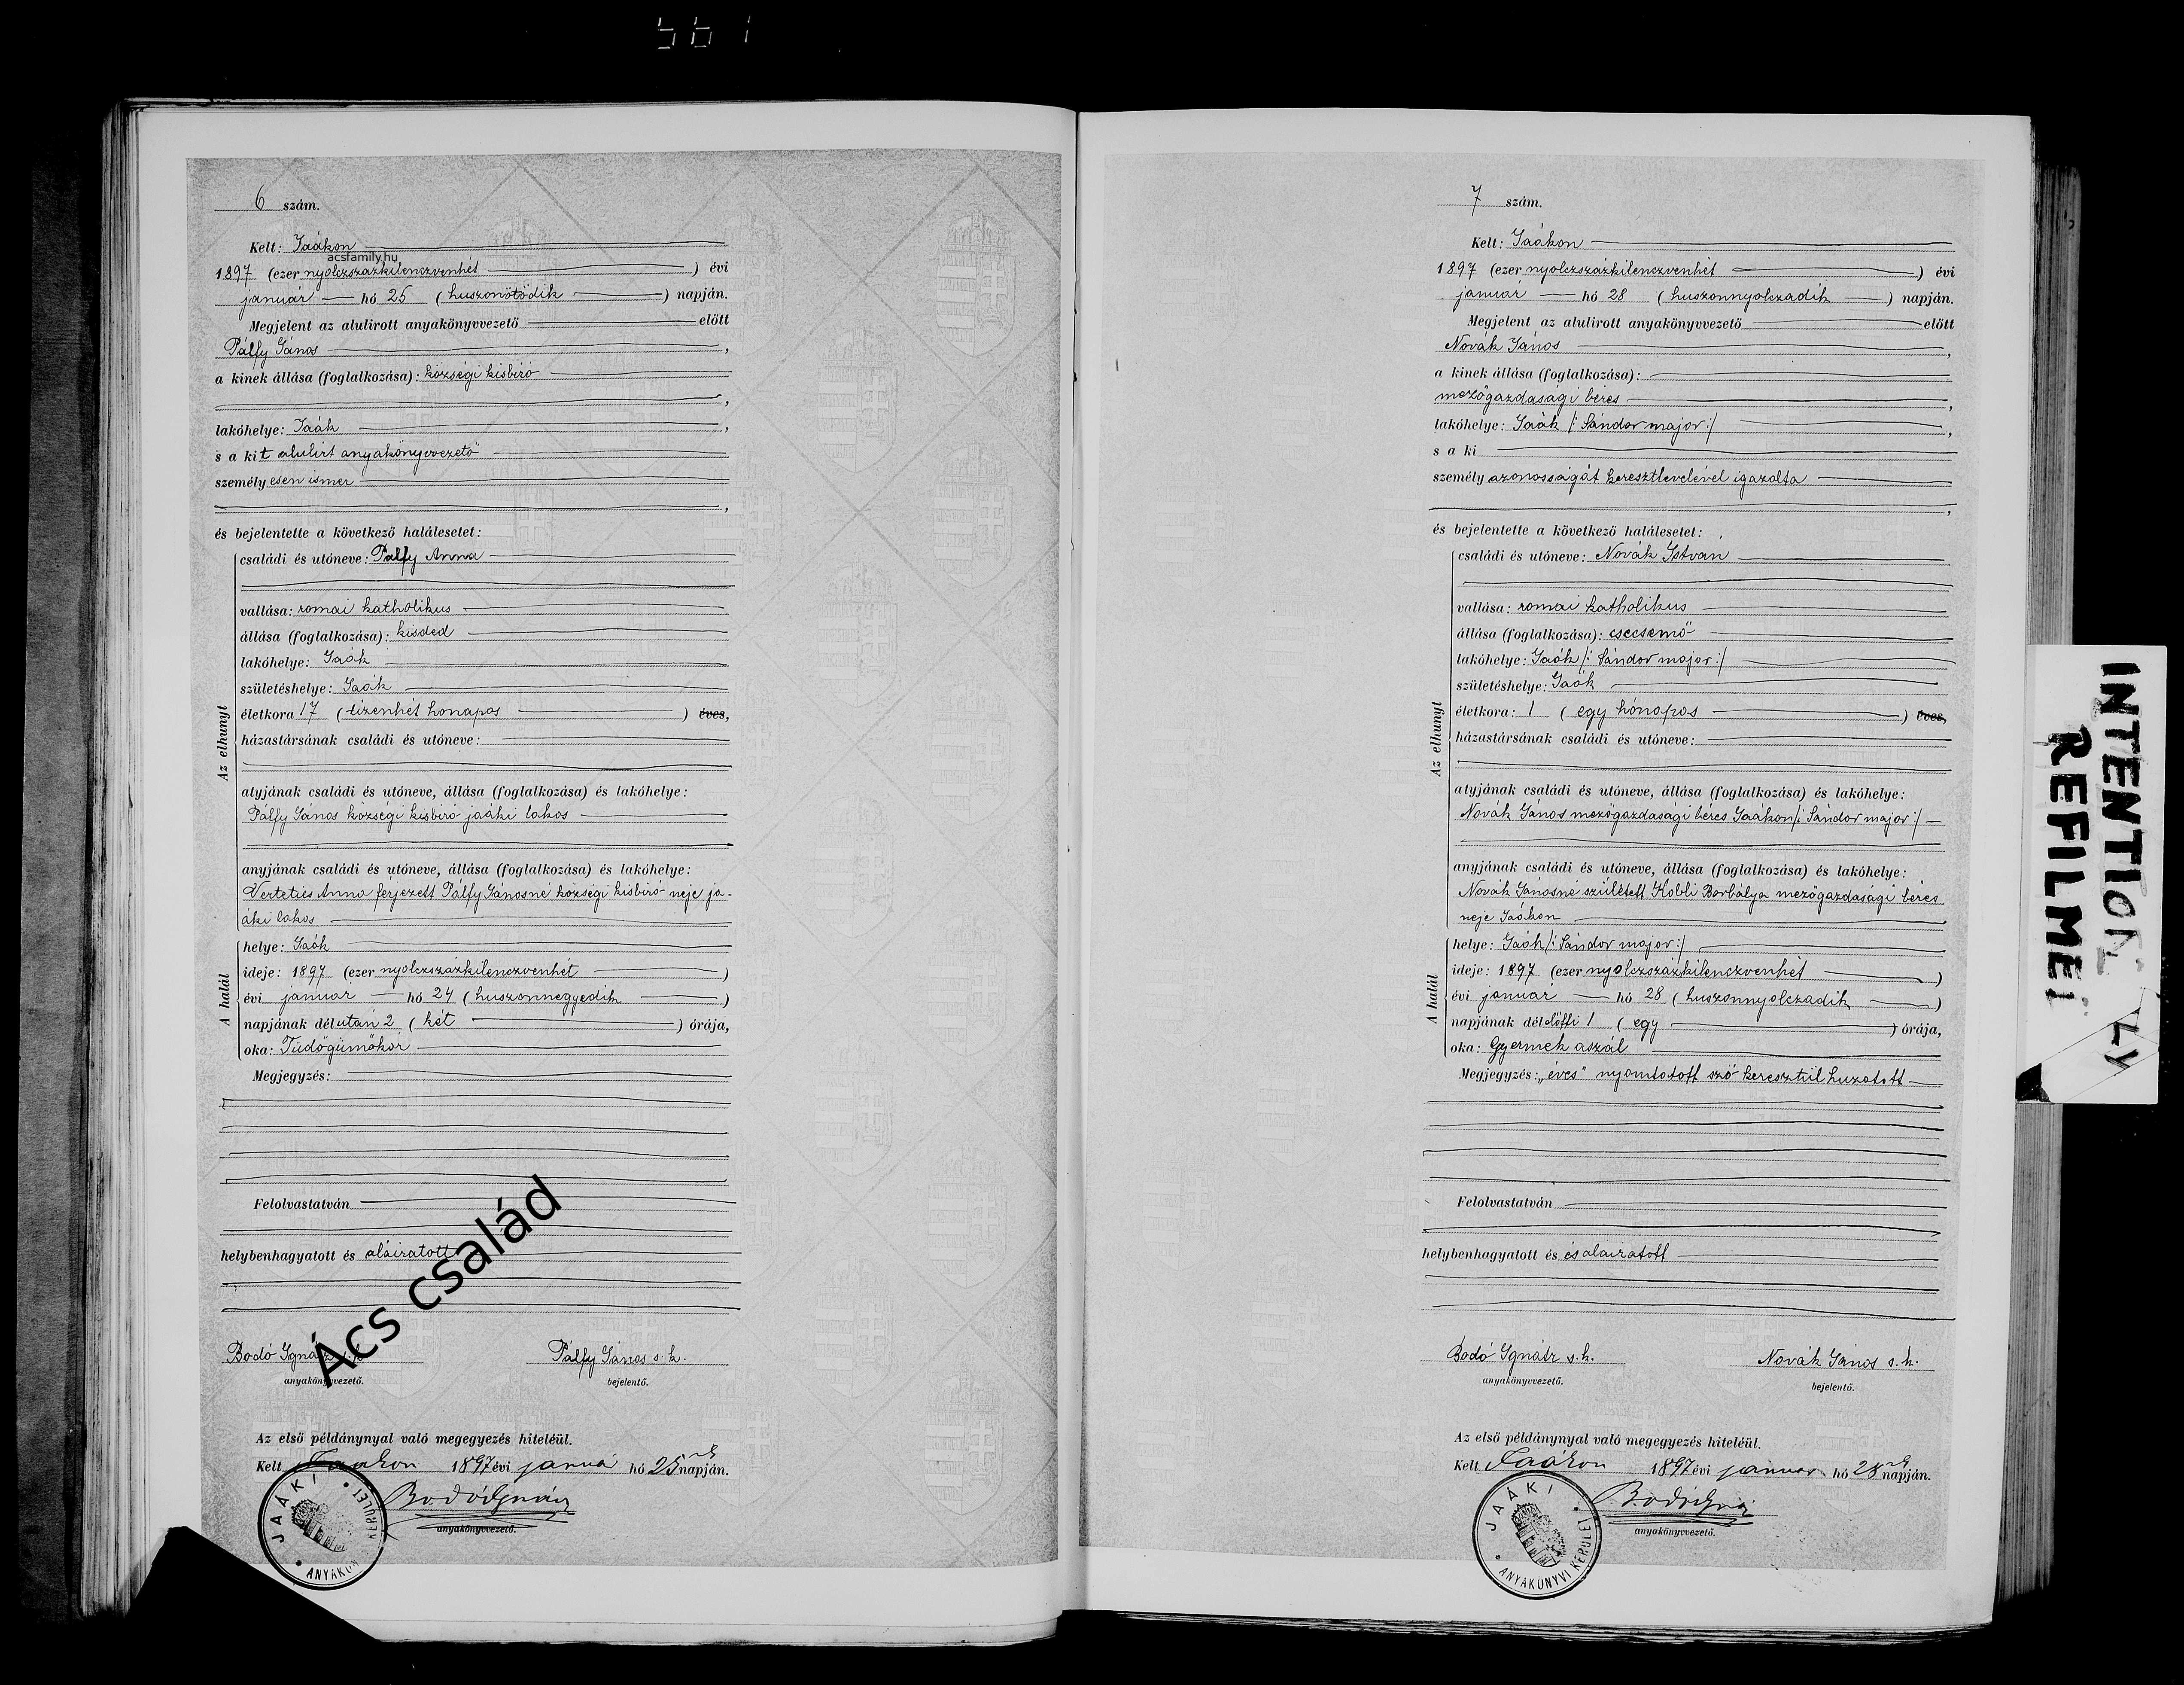 1 9 9 5
6 szám.
Kelt: Jaákon
acsfamily.hu
1897 (ezer nyolczszázkilenczvenhét ) évi
január hó 25 (huszonötödik ) napján.
Megjelent az alulirott anyakönyvvezető előtt
Pálfy János ,
a kinek állása (foglalkozása): községi kisbiró
,
lakóhelye: Jaák ,
s a kit alulirt anyakönyvvezető
személyesen ismer
,
és bejelentette a következő halálesetet:
Az elhunyt
családi és utóneve: Pálfy Anna
vallása: romai katholikus
állása (foglalkozása): kisded
lakóhelye: Jaák
születéshelye: Jaák
életkora 17 (tizenhét honapos ) éves,
házastársának családi és utóneve:
atyjának családi és utóneve, állása (foglalkozása) és lakóhelye:
Pálfy János községi kisbiró jaáki lakos
anyjának családi és utóneve, állása (foglalkozása) és lakóhelye:
Vertetics Anna ferjezett Pálfy Jánosné községi kisbiró neje ja-
áki lakos
A halál
helye: Jaák
ideje: 1897 (ezer nyolczszázkilenczvenhét )
évi január hó 24 (huszonnegyedik )
napjának délután 2 (két ) órája,
oka: Tüdőgümőkór
Megjegyzés:
Felolvastatván
helybenhagyatott és aláiratott
Ács család
Bodó Ignátz s.k. Pálfy János s.k.
anyakönyvvezető. bejelentő.
Az első példánynyal való megegyezés hiteléül.
Kelt Jaákon 1897 évi januá hó 25 napján.
Bodó Ignácz
anyakönyvvezető.
JAÁKI ANYAKÖN KERÜLET
7 szám.
Kelt: Jaákon
1897 (ezer nyolczszázkilenczvenhét ) évi
január hó 28 (huszonnyolczadik ) napján.
Megjelent az alulirott anyakönyvvezető előtt
Novák János ,
a kinek állása (foglalkozása):
mezőgazdasági béres ,
lakóhelye: Jaák /: Sándor major :/ ,
s a ki
személyazonosságát keresztlevelével igazolta
,
és bejelentette a következő halálesetet:
Az elhunyt
családi és utóneve: Novák Istvan
vallása: romai katholikus
állása (foglalkozása): csecsemő
lakóhelye: Jaák /: Sándor major :/
születéshelye: Jaák
életkora: 1 (egy hónapos ) éves,
házastársának családi és utóneve:
atyjának családi és utóneve, állása (foglalkozása) és lakóhelye:
Novák János mezőgazdasági béres Jaákon /: Sándor major :/
anyjának családi és utóneve, állása (foglalkozása) és lakóhelye:
Novák Janosné született Kobli Borbálya mezőgazdasági béres
neje Jaákon
A halál
helye: Jaák /: Sándor major :/
ideje: 1897 (ezer nyolczszázkilenczvenhét )
évi január hó 28 (huszonnyolczadik )
napjának délelőtti 1 (egy ) órája,
oka: Gyermek aszál
Megjegyzés: „éves" nyomtatott szó keresztül huzatott
Felolvastatván
helybenhagyatott és és alairatott
Bodó Ignátz s.k. Novák János s.k.
anyakönyvvezető. bejelentő.
Az első példánynyal való megegyezés hiteléül.
Kelt Jaákon 1897 évi január hó 28 napján.
Bodó Ignácz
anyakönyvvezető.
JAÁKI ANYAKÖNYVI KERÜLET
INTENTION LLY
REFILMEI